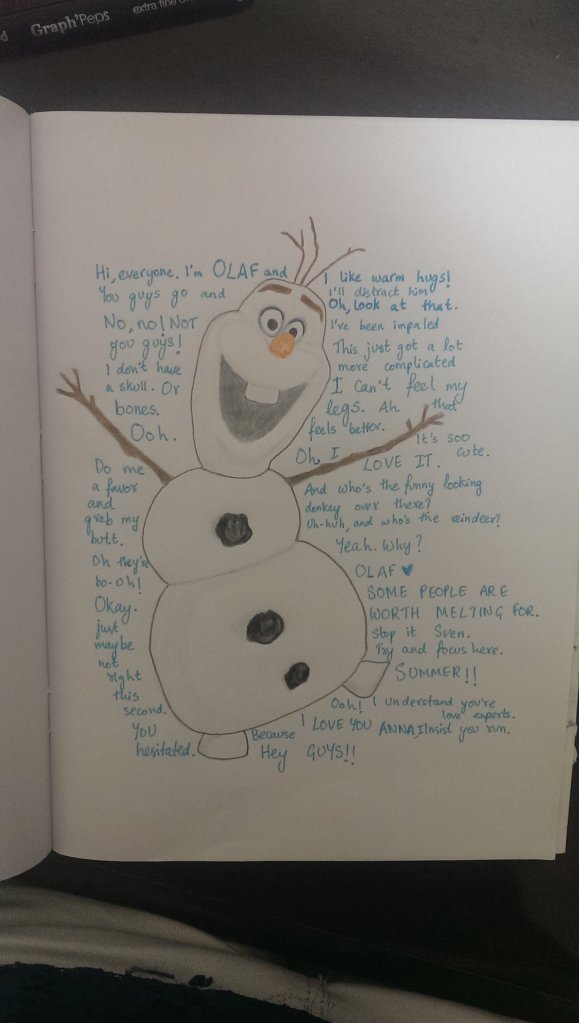 Graph'Peps
extra fine
Hi, everyone. I'm OLAF and
I like warm hugs!
You guys go and
I'll distract him
Oh, look at that.
No, no! NOT
you guys!
I've been impaled
This just got a lot
more complicated
I don't have
a skull. Or
bones.
Ooh.
I Can't feel my
legs. Ah that
feels better.
It's soo
cute.
Oh I LOVE IT.
Do me
a favor
and
grab my
butt.
Oh they're
bo-oh!
Okay.
just
maybe
not
right
this
second.
YOU
hesitated.
And who's the funny looking
donkey over there?
Uh-huh, and who's the reindeer?
Yeah. Why?
OLAF ♥
SOME PEOPLE ARE
WORTH MELTING FOR.
Stop it Sven.
Try and focus here.
SUMMER!!
Ooh! I understand you're
love experts.
I LOVE YOU ANNA, I Insist you run.
Because
Hey GUYS!!